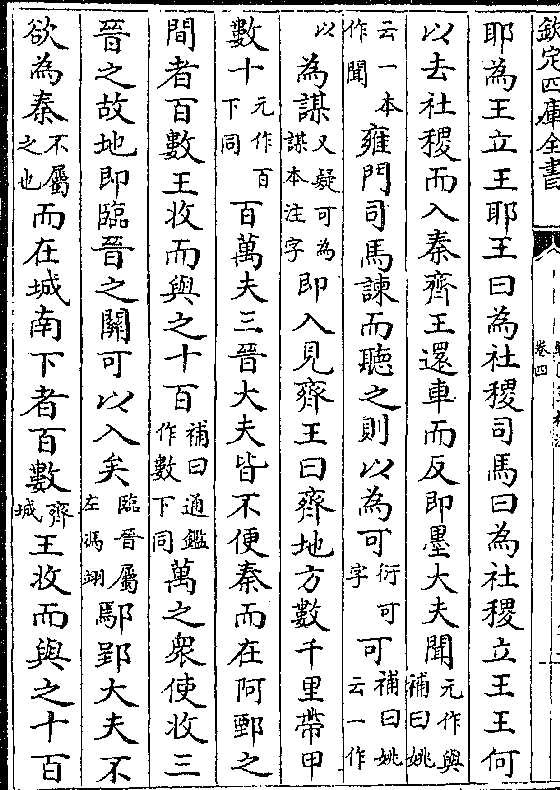 欽定四庫全書
卷四
耶為王立王耶王曰為社稷司馬曰為社稷立王王何
以去社稷而入秦齊王還車而反即墨大夫聞元作與補曰姚
云一本作聞雍門司馬諫而聽之則以為可衍可字可補曰姚云一作
以為謀又疑可為謀本注字即入見齊王曰齊地方數千里帶甲
數十元作百下同百萬夫三晉大夫皆不便秦而在阿鄄之
間者百數王收而與之十百補曰通鑑作數下同萬之衆使收三
晉之故地即臨晉之關可以入矣臨晉屬左馮翊鄢郢大夫不
欲為秦不屬之也而在城南下者百數齊城王收而與之十百